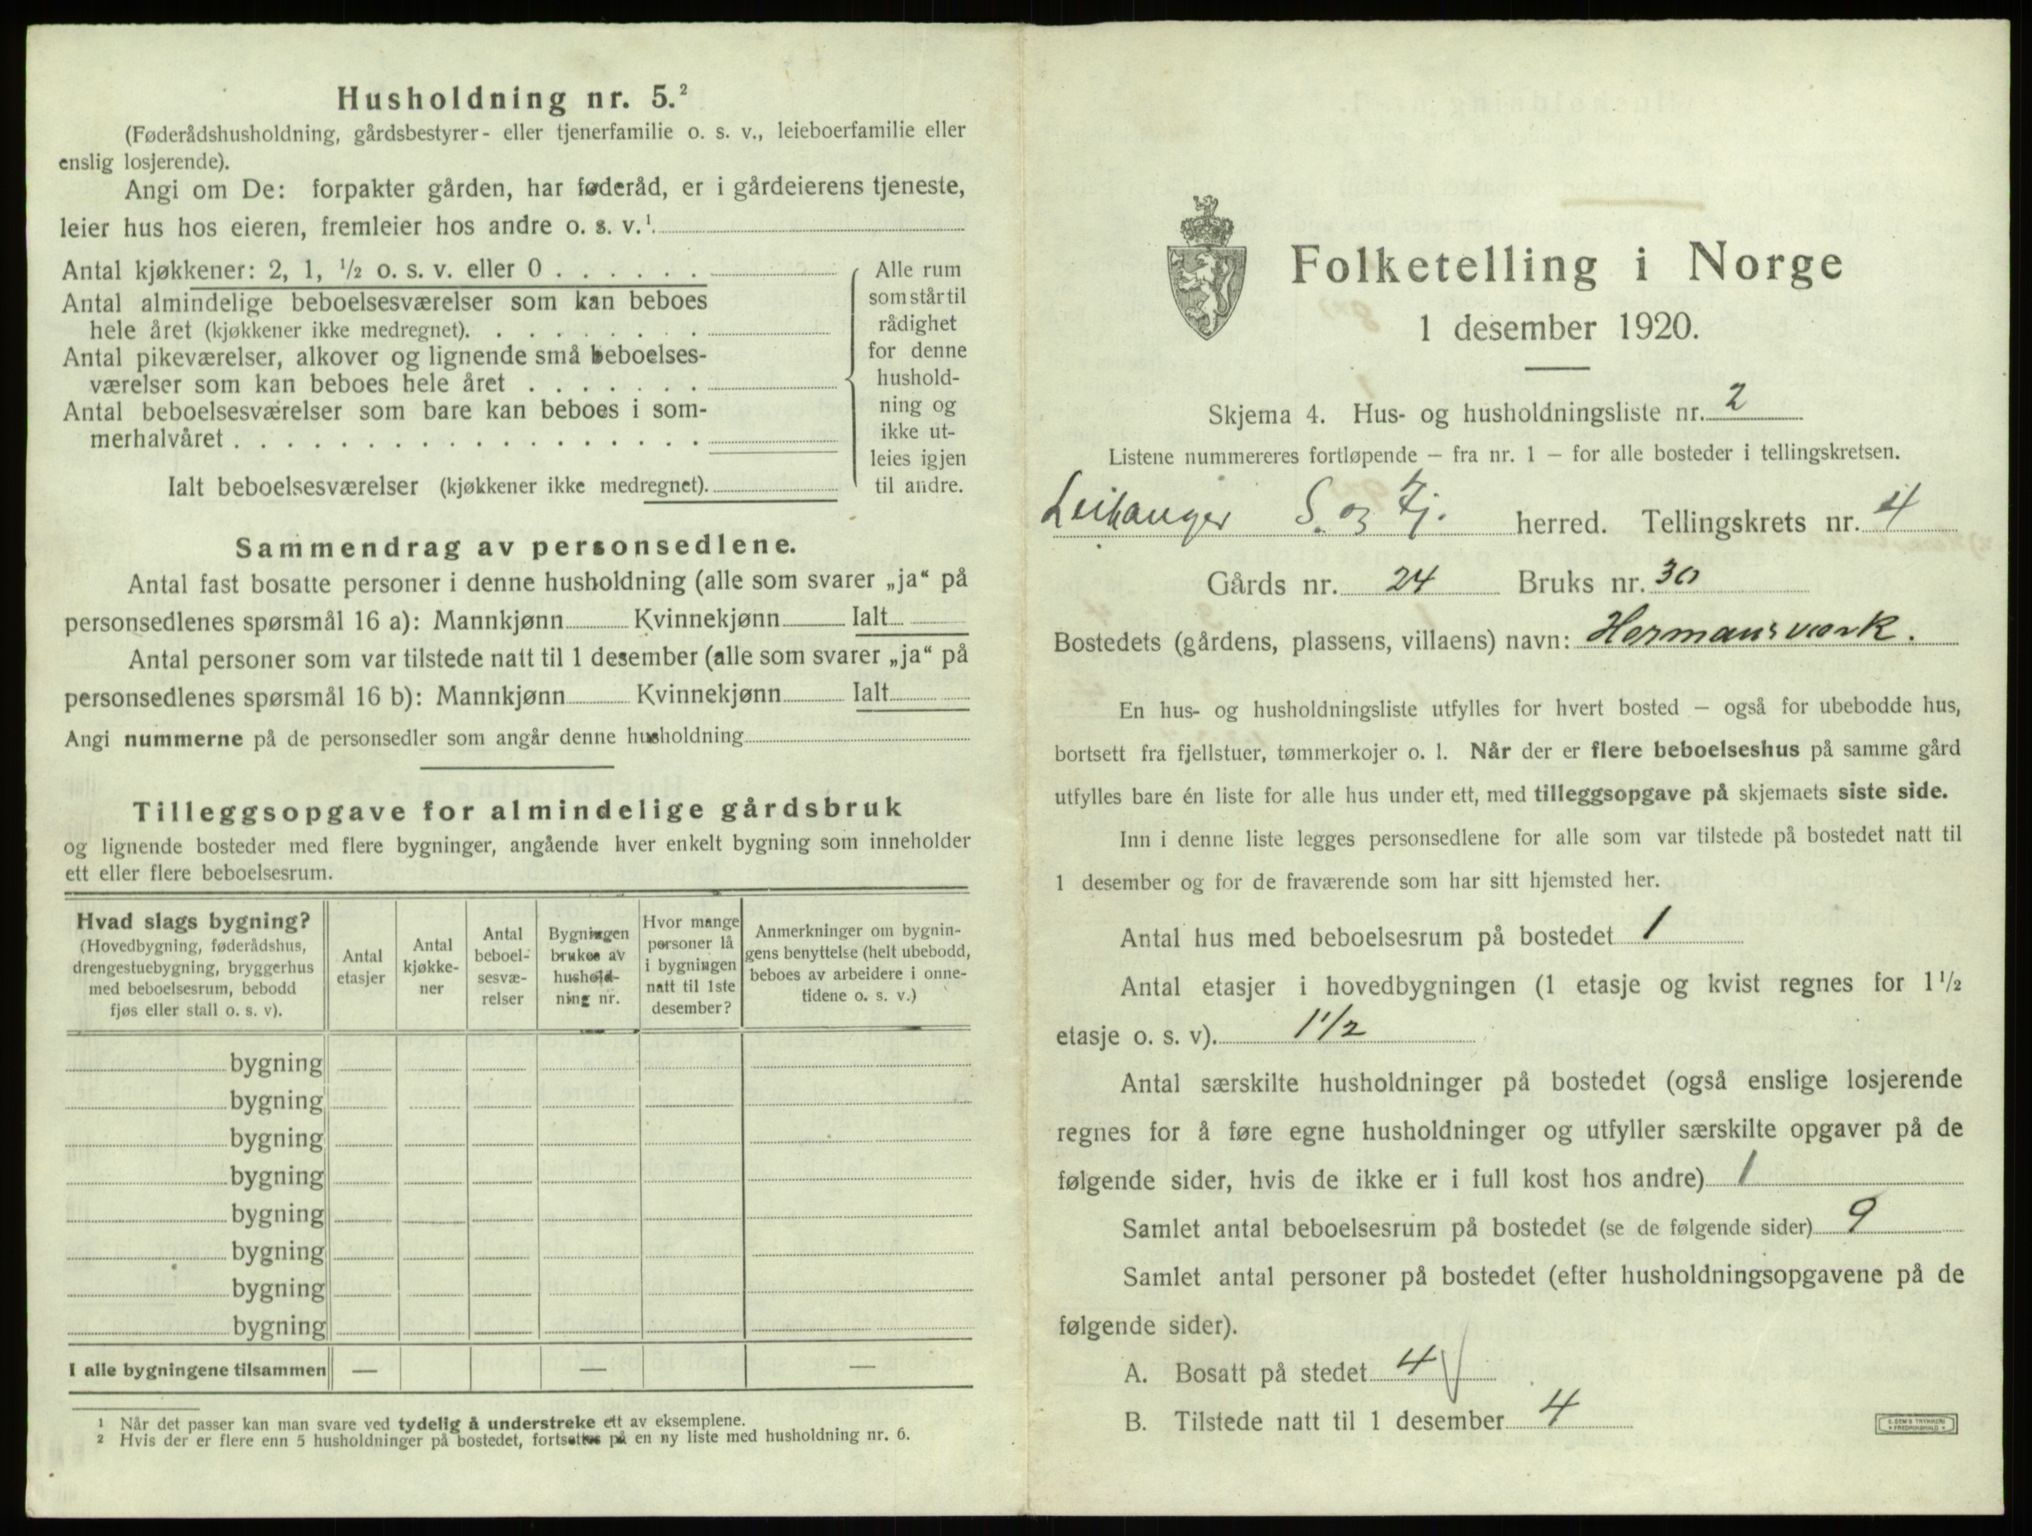 Husholdning nr. 5.²
(Føderådshusholdning, gårdsbestyrer- eller tjenerfamilie o. s. v., leieboerfamilie eller
enslig losjerende).
Angi om De: forpakter gården, har føderåd, er i gårdeierens tjeneste,
leier hus hos eieren, fremleier hos andre o. s. v.¹
Antal kjøkkener: 2, 1, ½ o. s. v. eller 0 . . . . . .
Antal almindelige beboelsesværelser som kan beboes
hele året (kjøkkener ikke medregnet). . . . . . . . .
Antal pikeværelser, alkover og lignende små beboelses-
værelser som kan beboes hele året . . . . . . .
Antal beboelsesværelser som bare kan beboes i som-
merhalvåret . . . . . . . . . . . . . . . . . .
Ialt beboelsesværelser (kjøkkener ikke medregnet).
Alle rum
som står til
rådighet
for denne
hushold-
ning og
ikke ut-
leies igjen
til andre.
Sammendrag av personsedlene.
Antal fast bosatte personer i denne husholdning (alle som svarer „ja“ på
personsedlenes spørsmål 16 a): Mannkjønn Kvinnekjønn Ialt
Antal personer som var tilstede natt til 1 desember (alle som svarer „ja“ på
personsedlenes spørsmål 16 b): Mannkjønn Kvinnekjønn Ialt
Angi nummerne på de personsedler som angår denne husholdning
Tilleggsopgave for almindelige gårdsbruk
og lignende bosteder med flere bygninger, angående hver enkelt bygning som inneholder
ett eller flere beboelsesrum.
Hvad slags bygning?
(Hovedbygning, føderådshus,
drengestuebygning, bryggerhus
med beboelsesrum, bebodd
fjøs eller stall o. s. v).
Antal
etasjer
Antal
kjøkke-
ner
Antal
beboel-
sesvæ-
relser
Bygningen
brukes av
hushold-
ning nr.
Hvor mange
personer lå
i bygningen
natt til 1ste
desember?
Anmerkninger om bygnin-
gens benyttelse (helt ubebodd,
beboes av arbeidere i onne-
tidene o. s. v.)
bygning
bygning
bygning
bygning
bygning
bygning
bygning
bygning
I alle bygningene tilsammen — — —
¹ Når det passer kan man svare ved tydelig å understreke ett av eksemplene.
² Hvis der er flere enn 5 husholdninger på bostedet, fortsettes på en ny liste med husholdning nr. 6.
Folketelling i Norge
1 desember 1920.
Skjema 4. Hus- og husholdningsliste nr. 2
Listene nummereres fortløpende – fra nr. 1 – for alle bosteder i tellingskretsen.
Leikanger S. og Fj. herred. Tellingskrets nr. 4
Gårds nr. 24 Bruks nr. 30
Bostedets (gårdens, plassens, villaens) navn: Hermansverk.
En hus- og husholdningsliste utfylles for hvert bosted – også for ubebodde hus,
bortsett fra fjellstuer, tømmerkojer o. l. Når der er flere beboelseshus på samme gård
utfylles bare én liste for alle hus under ett, med tilleggsopgave på skjemaets siste side.
Inn i denne liste legges personsedlene for alle som var tilstede på bostedet natt til
1 desember og for de fraværende som har sitt hjemsted her.
Antal hus med beboelsesrum på bostedet 1
Antal etasjer i hovedbygningen (1 etasje og kvist regnes for 1½
etasje o. s. v). 1½
Antal særskilte husholdninger på bostedet (også enslige losjerende
regnes for å føre egne husholdninger og utfyller særskilte opgaver på de
følgende sider, hvis de ikke er i full kost hos andre) 1
Samlet antal beboelsesrum på bostedet (se de følgende sider) 9
Samlet antal personer på bostedet (efter husholdningsopgavene på de
følgende sider).
A. Bosatt på stedet 4
B. Tilstede natt til 1 desember 4